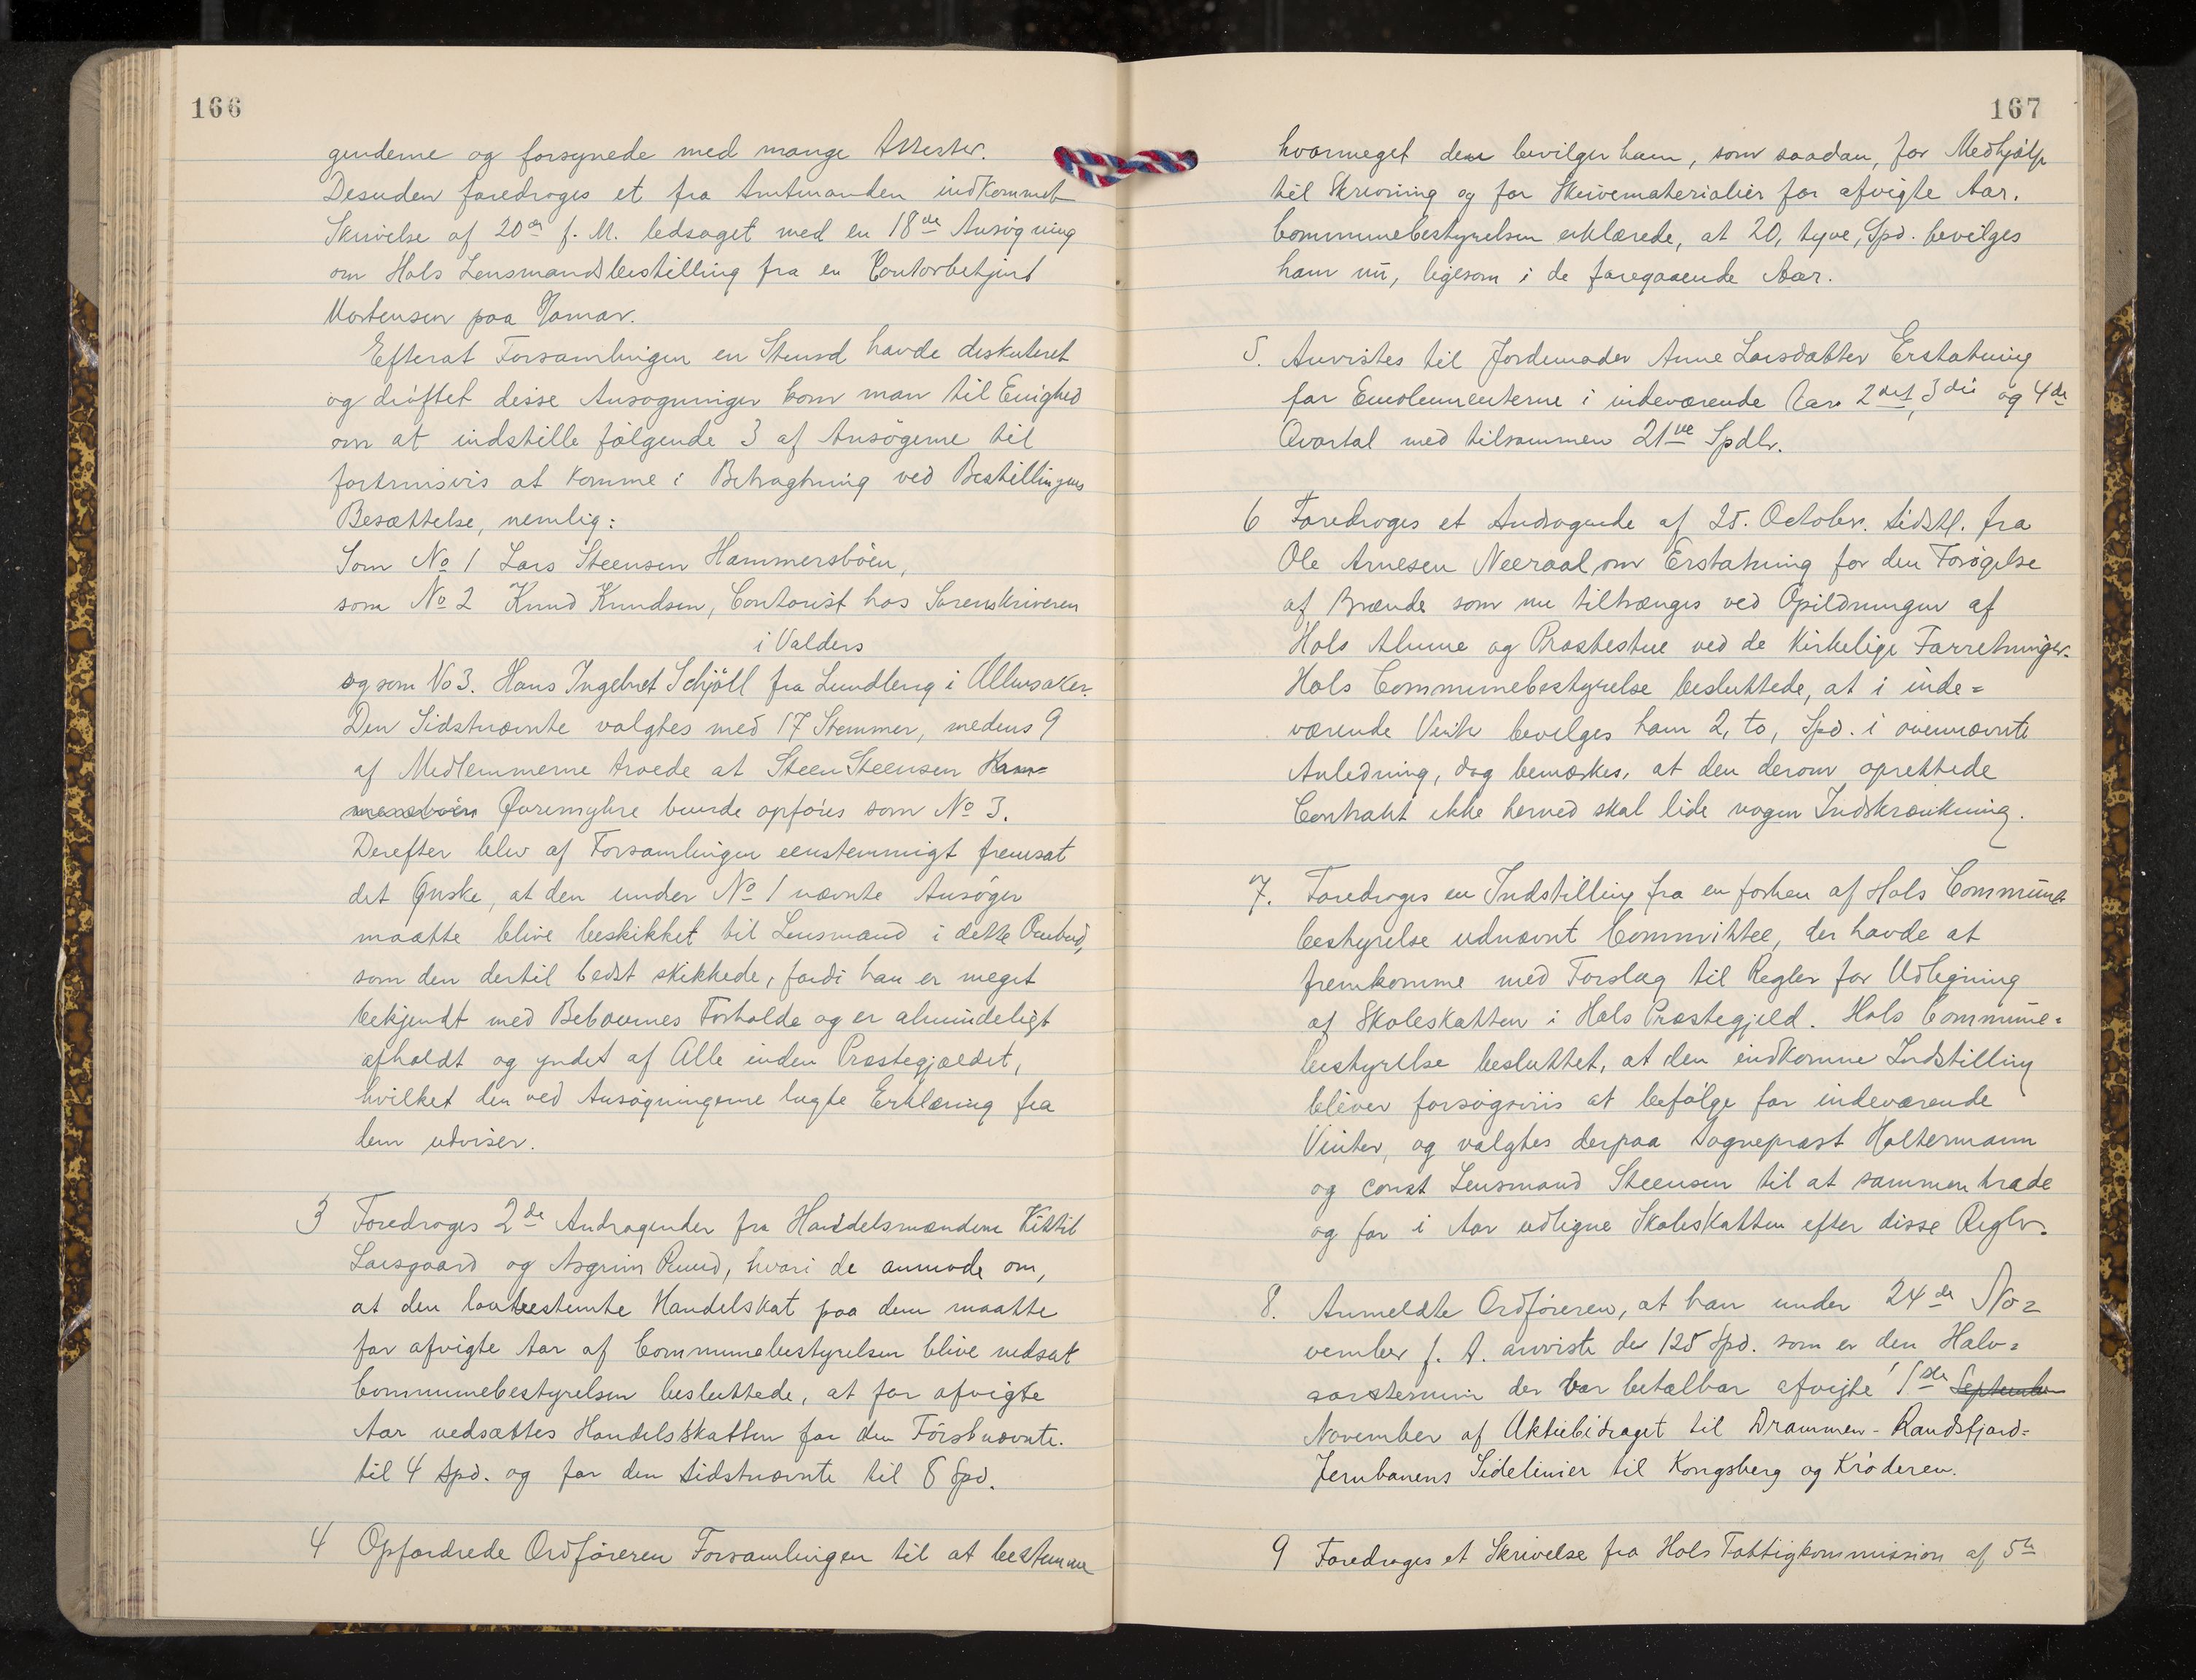 166
genderne og forsynede med mange Attester.
Desuden foredroges et fra Amtmanden indkommet
Skrivelse af 20de f. M. ledsaget med en 18de Ansøgning
om Hols Lensmandsbestilling fra en Contorbetjent
Mortensen paa Hamar.
Efterat Forsamlingen en Stund havde diskuteret
og drøftet disse Ansøgninger kom man til Enighed
om at indstille følgende 3 af Ansøgerne til
fortrinsvis at komme i Betragtning ved Bestillingens
Besættelse, nemlig:
Som No 1 Lars Steensen Hammersbøen,
som No 2 Knud Knudsen, Contorist hos Sorenskriveren
i Valders
og som No 3. Hans Ingebret Schjøll fra Lundberg i Ullensaker.
Den Sidstnævnte valgtes med 17 Stemmer, medens 9
af Medlemmerne troede at Steen Steensen Ham=
mersbøen Furemyhre burde opføres som No 3.
Derefter blev af Forsamlingen eenstemmigt fremsat
det Ønske, at den under No 1 nævnte Ansøger
maatte blive beskikket til Lensmand i dette Ombud,
som den dertil bedst skikkede, fordi han er meget
bekjendt med Beboernes Forholde og er almindeligt
afholdt og yndet af Alle inden Præstegjældet,
hvilket den ved Ansøgningerne lagte Erklæring fra
dem udviser.
3 Foredroges 2de Andragender fra Handelsmændene Kittil
Larsgaard og Asgrim Ruud, hvori de anmode om,
at den lovbestemte Handelskat paa dem maatte
for afvigte Aar af Communebestyrelsen blive nedsat
Communebestyrelsen besluttede, at for afvigte
Aar nedsættes Handelsskatten for den Førstnævnte.
til 4 Spd. og for den sidstnævnte til 8 Spd.
4 Opfordrede Ordføreren Forsamlingen til at bestemme
167
hvormeget den bevilger ham, som saadan, for Medhjælp
til Skrivning og for Skrivematerialier for afvigte Aar.
Communebestyrelsen erklærede, at 20, tyve, Spd. bevilges
ham nu, ligesom i de foregaaende Aar.
5. Anvistes til Jordemoder Anne Larsdatter Erstatning
for Emolumenterne i indeværende Aars 2det, 3die og 4de
Qvartal med tilsammen 21ve Spdlr.
6 Foredroges et Andragende af 25. October. sidstl. fra
Ole Arnesen Neeraal, om Erstatning for den Forøgelse
af Brænde som nu tiltrænges ved Opildningen af
Hols Almue og Præstestue ved de kirkelige Forretninger.
Hols Communebestyrelse besluttede, at i inde=
værende Vinter bevilges ham 2, to, Spd. i ovennævnte
Anledning, dog bemærkes, at den derom oprettede
Contrakt ikke herved skal lide nogen Indskrænkning.
7. Foredroges en Indstilling fra en forhen af Hols Commune
bestyrelse udnævnt Committee, der havde at
fremkomme med Forslag til Regler for Udligning
af Skoleskatten i Hols Præstegjeld. Hols Commune=
bestyrelse besluttet, at den indkomne Indstilling
bliver forsøgsviis at befølge for indeværende
Vinter, og valgtes derpaa Sognepræst Holtermann
og const Lensmand Steensen til at sammentræde
og for i Aar udligne Skoleskatten efter disse Regler.
8. Anmeldte Ordføreren, at han under 24de No=
vember f. A. anviste de 125 Spd. som er den Halv=
aarstermin der var betalbar afvigte 1ste September
November af Aktiebidraget til Drammen-Randsfjord=
Jernbanens Sidelinier til Kongsberg og Krøderen.
9 Foredroges et Skrivelse fra Hols Fattigkommission af 5te